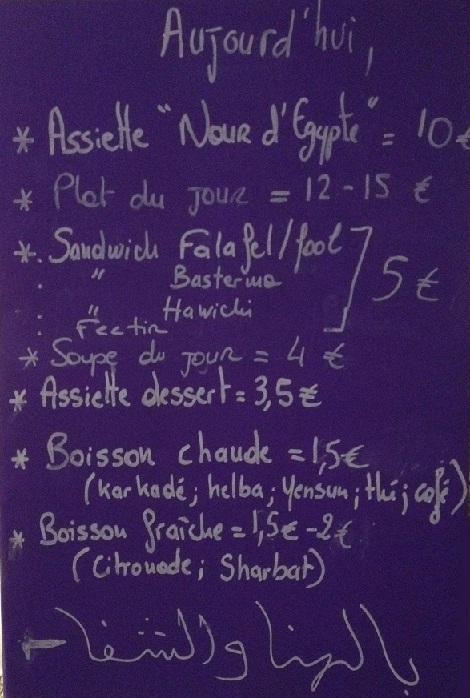 Aujourd'hui,
* Assiette "Nour d'Egypte" = 10€
* Plat du jour = 12-15 €
*. Sandwich Falafel/fool
: " Basterma ] 5 €
: " Hawichi
Feetir
* Soupe du jour = 4 €
* Assiette dessert = 3,5€
* Boisson chaude = 1,5€
(karkadé; helba; Yensun; thé; café)
* Boisson fraîche = 1,5€ - 2€
(Citronade; Sharbat)
بالهنا والشفا